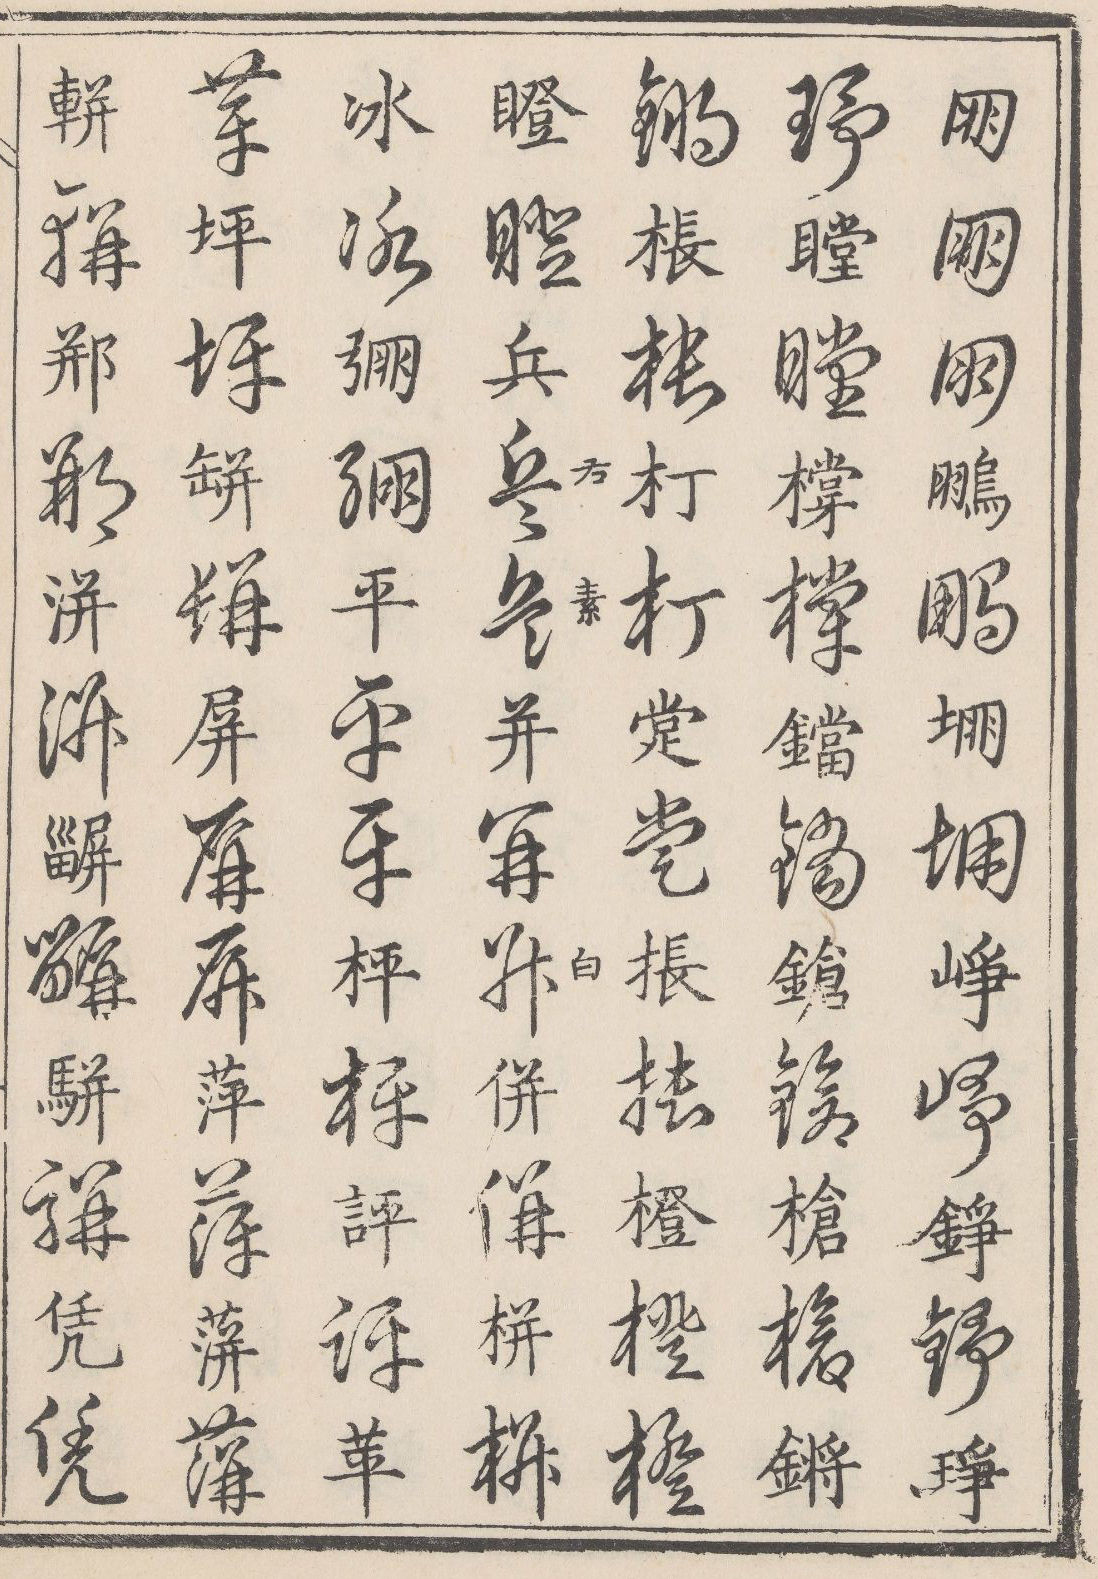 朋朋朋鵬鵬堋堋崢崢錚錚琤
琤瞠瞠橕橕鐺鐺鎗鎗槍槍鏘
鏘棖棖朾朾定定掁掁橙橙橙
瞪瞪兵兵右兵素并并并白併併栟栟
冰冰弸弸平平平枰枰評評苹
苹坪坪缾缾屏屏屏萍萍蓱蓱
軿軿郱郱洴洴㔙駢駢凭凭